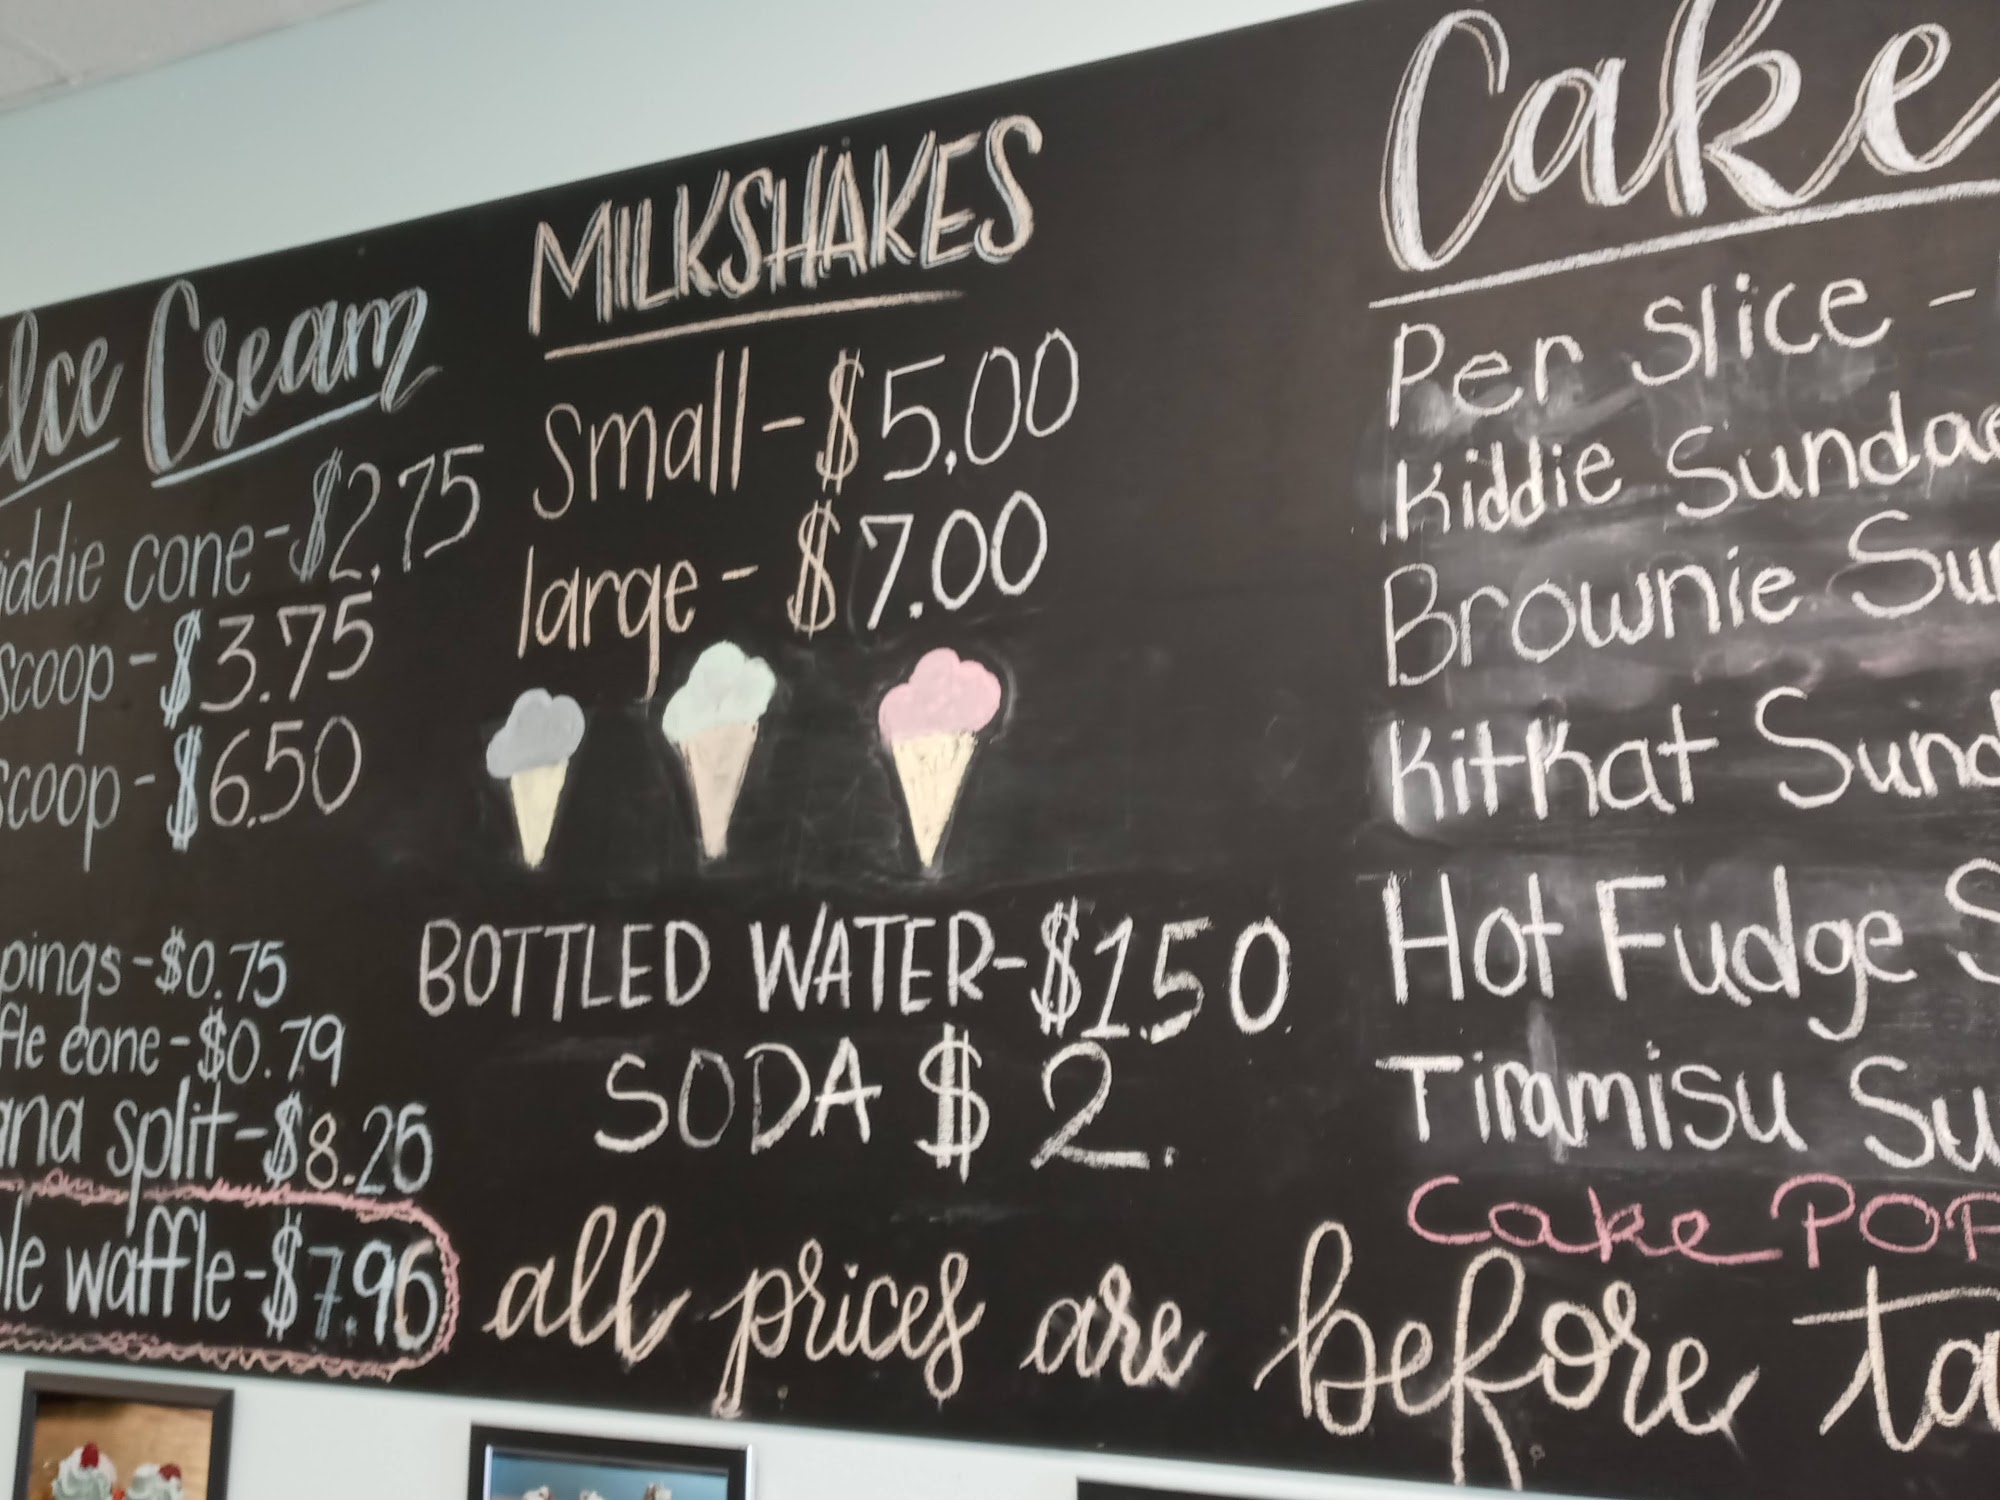 Ice Cream
iddie cone - $2.75
scoop - $3.75
scoop - $6.50
pings - $0.75
ffle cone - $0.79
ana split - $8.25
le waffle - $7.96
MILKSHAKES
Small - $5.00
large - $7.00
BOTTLED WATER - $1.50
SODA $2.
all prices are before ta
Cake
Per Slice -
Kiddie Sundae
Brownie Sun
KitKat Sund
Hot Fudge S
Tiramisu Su
Cake POP